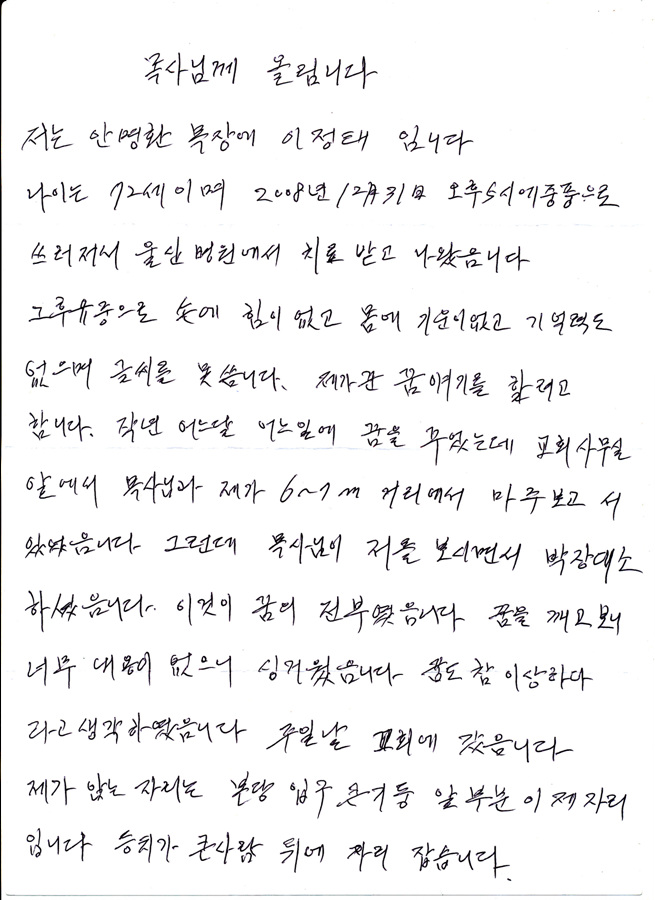 목사님께 올립니다
저는 안명환 목장에 이정태 입니다
나이는 72세이며 2008년 12月31日 오후5시에중풍으로
쓰러저서 울산병원에서 치료 받고 나왔읍니다
그후유증으로 손에 힘이 없고 몸에 기운이없고 기억력도
없으며 글씨를 못씁니다. 제가꾼 꿈 이여기를 할려고
합니다. 작년 어느달 어느일에 꿈을 꾸었는데 교회사무실
앞에서 목사님과 제가 6~7m 거리에서 마주보고 서
있었읍니다. 그런데 목사님이 저를 보시면서 박장대소
하셨읍니다. 이것이 꿈의 전부였읍니다 꿈을 깨고보니
너무 내용이 없으니 싱거웠읍니다 꿈도 참 이상하다
라고생각하였읍니다 주일날 교회에 갔읍니다
제가 앉는 자리는 본당 입구 큰기둥 앞부분이 제자리
입니다 등치가 큰사람 뒤에 자리 잡습니다.